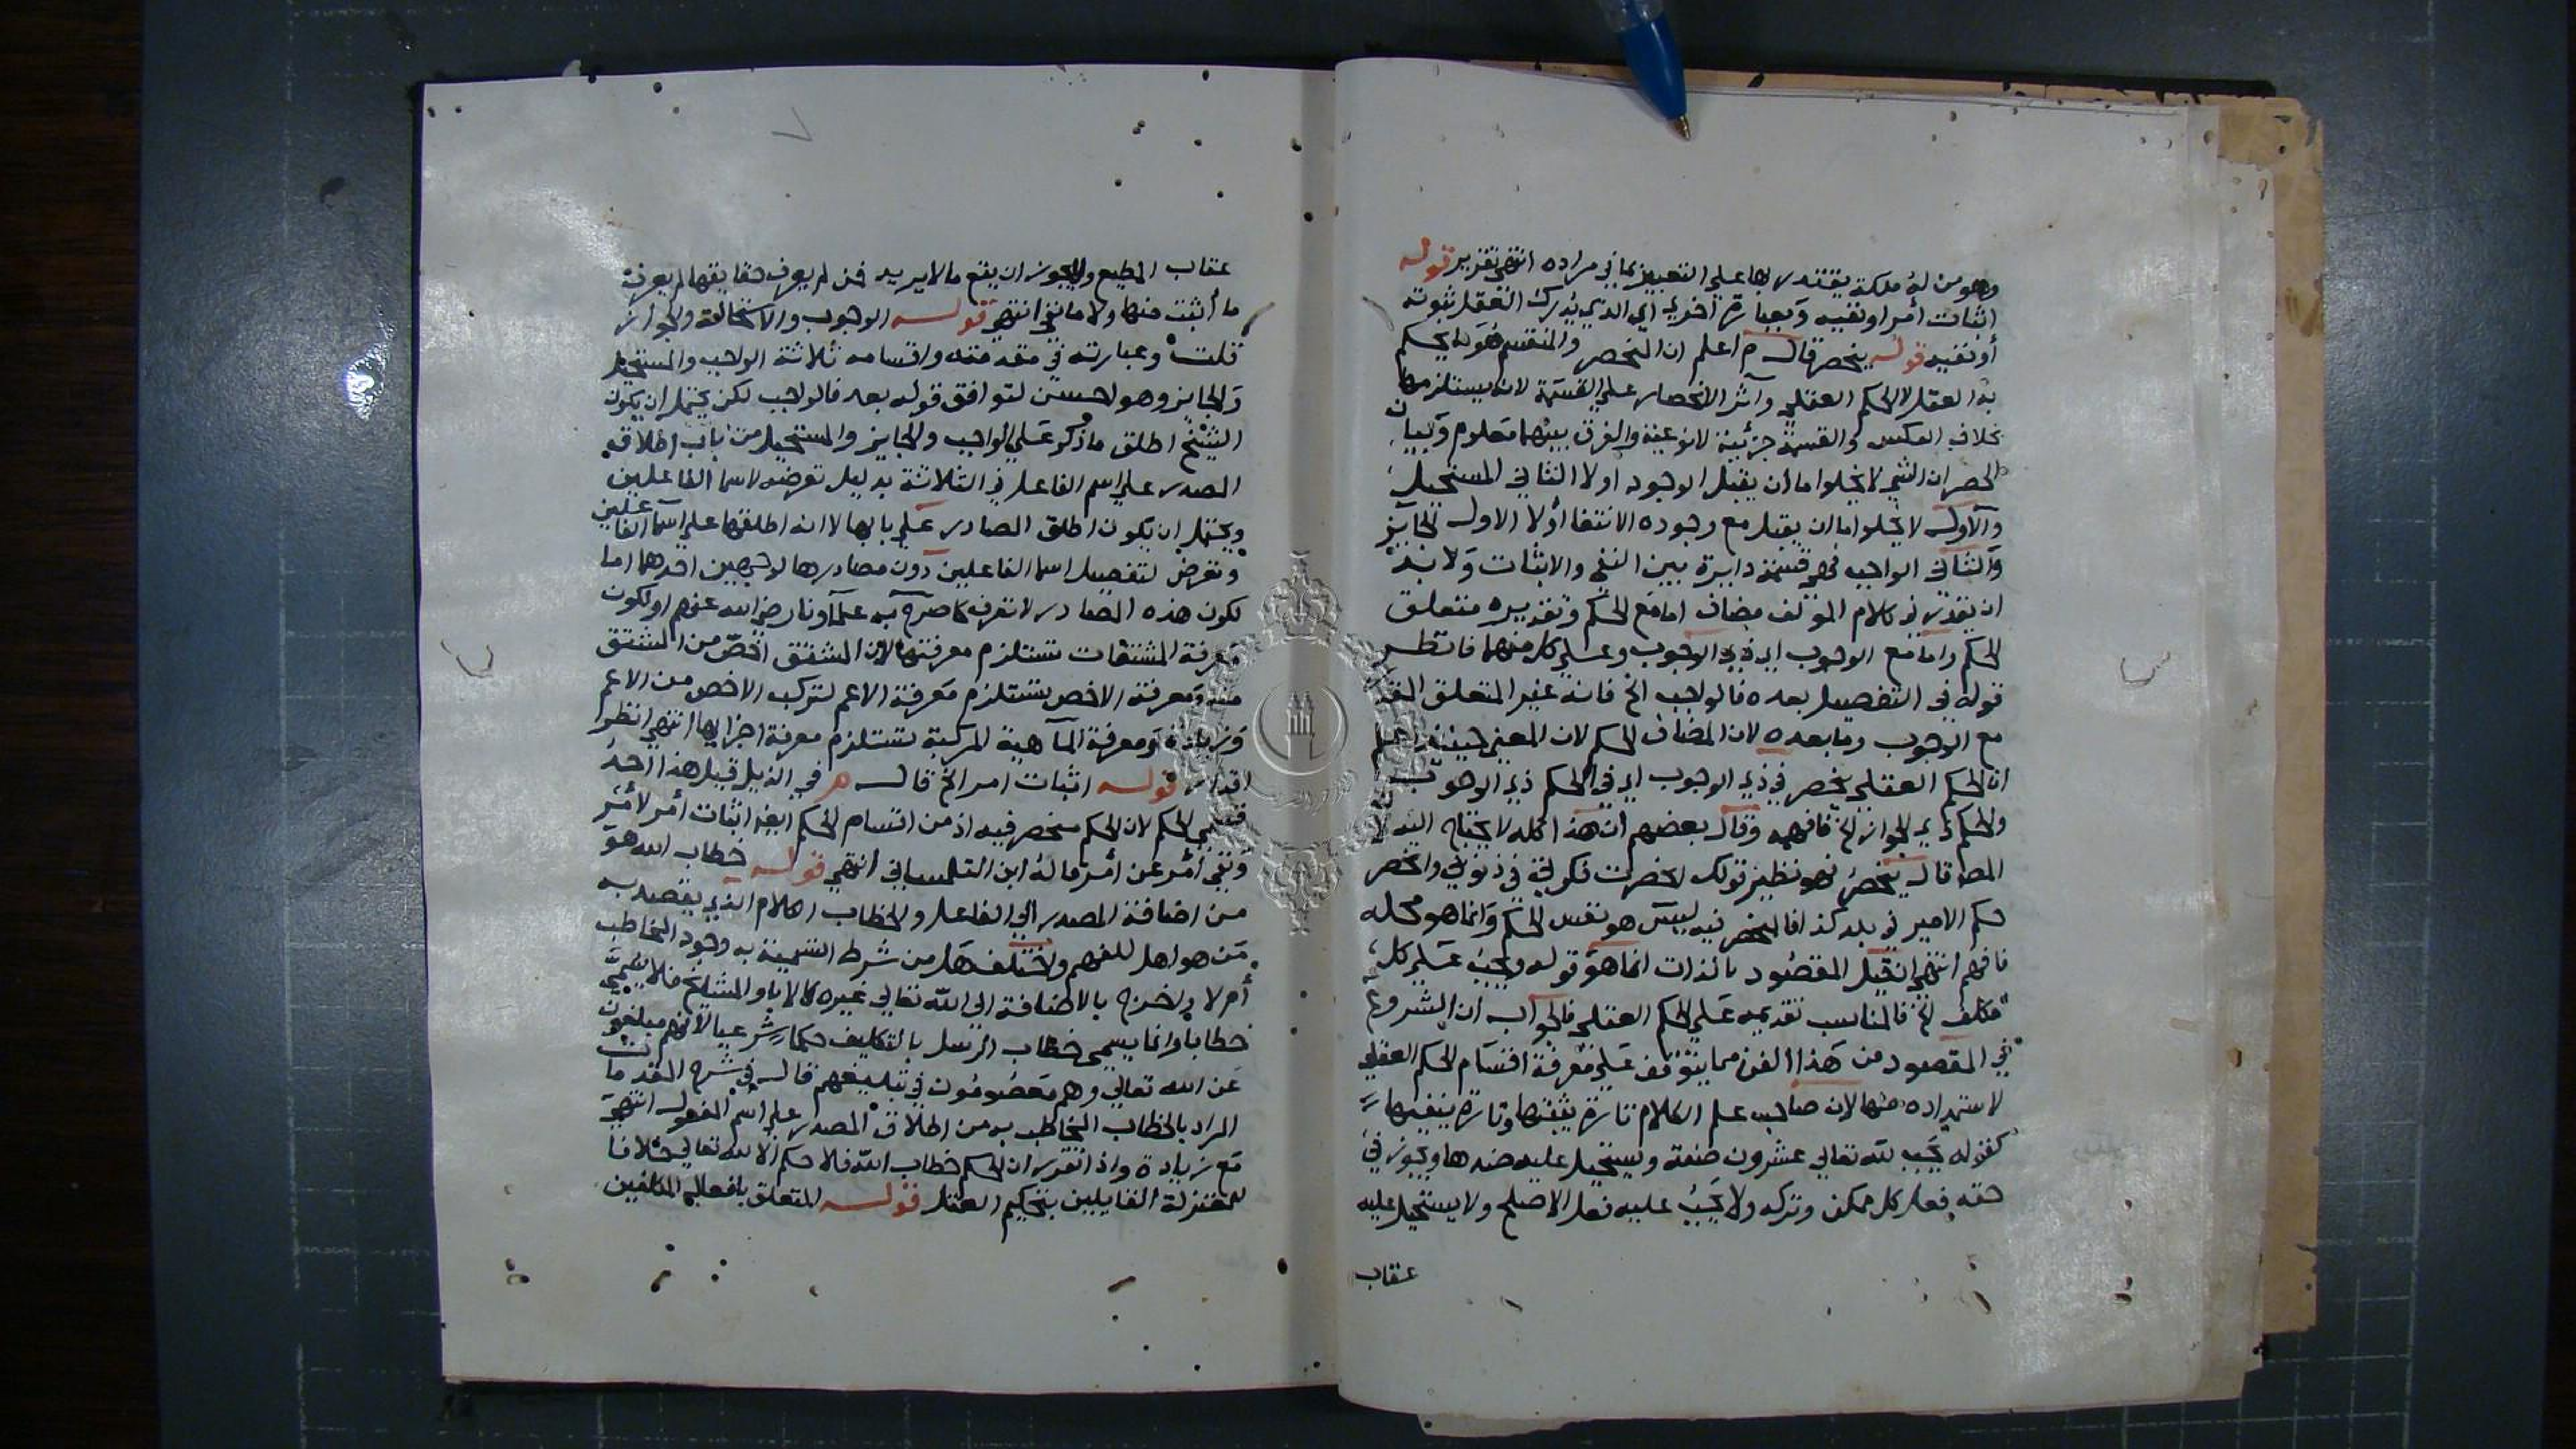 وهو من له ملكة يقتدر بها على التعبير عما في مراده انتهى تقرير قوله
اثبات أمر او نفيه وبعبارة اخرى اي الذي يدرك العقل ثبوته
أو نفيه قوله ينحصر قال م اعلم ان المنحصر والمنقسم هو ما يحكم
به العقل لا الحكم العقلي وآثر الانحصار على القسمة لانه يستلزمها
بخلاف العكس والقسمة جزئية لا نوعية والفرق بينهما معلوم وبيان
الحصر ان الشي لا يخلوا اما أن يقبل الوجود او لا الثاني المستحيل
والأول لا يخلوا اما ان يقبل مع وجوده الانتفا أولا الاول الجايز
والثاني الواجب فهي قسمة دايرة بين النفي والاثبات ولا بد
ان يقدر في كلام المؤلف مضاف اما مع الحكم وتقديره متعلق
الحكم واما مع الوجوب اي ذي الوجوب وعلى كل منهما فانظر
قوله في التفصيل بعده فالواجب الخ فانه عين المتعلق المقدر
مع الوجوب وما بعده لان المضاف للحكم لان المعنى حينئذ اعلم
ان الحكم العقلي ينحصر في ذي الوجوب اي في الحكم ذي الوجوب
والحكم ذي الجواز الخ فافهم وقال بعضهم ان هذا كله لا يحتاج اليه لان
المص قال ينحصر فهو نظير قولك انحصرت فكرتي في ذنوبي وانحصر
حكم الامير في بلد كذا فالمنحصر فيه ليس هو نفس الحكم وانما هو محله
فافهم انتهى ان قيل المقصود بالذات انما هو قوله ويجب على كل
مكلف الخ فالمناسب تقديمه على الحكم العقلي فالجواب ان الشروع
في المقصود من هذا الفن مما يتوقف على معرفة اقسام الحكم العقلي
لاستمداده منها لان صاحب علم الكلام تارة يثبتها وتارة ينفيها
كقوله يجب لله تعالى عشرون صفة ويستحيل عليه ضدها ويجوز في
حقه فعل كل ممكن وتركه ولا يجب عليه فعل الاصلح ولا يستحيل عليه
عقاب
عقاب المطيع ولا يجوز ان يقع ما لا يريد فمن لم يعرف حقايقها لم يعرف
ما أثبت منها ولا ما نفي انتهى قوله الوجوب والاستحالة والجواز
قلت وعبارته في مقدمته واقسامه ثلاثة الواجب والمستحيل
والجايز وهو احسن لتوافق قوله بعد فالواجب لكن يحتمل ان يكون
الشيخ اطلق ما ذكر على الواجب والجايز والمستحيل من باب اطلاق
المصدر على اسم الفاعل في الثلاثة بدليل تعرضه لاسما الفاعلين
ويحتمل ان يكون اطلق المصادر على بابها لا انه اطلقها على اسما الفاعلين
وتعرض لتفصيل اسما الفاعلين دون مصادرها لوجهين احدهما اما
لكون هذه المصادر لا تعرف كما صرح به علماونا رضي الله عنهم او لكون
معرفة المشتقات تستلزم معرفتها لان المشتق اخص من المشتق
منه ومعرفة الاخص تستلزم معرفة الاعم لتركب الاخص من الاعم
وزيادة ومعرفة الماهية المركبة تستلزم معرفة اجزايها انتهى انظر
قوله اثبات امر الخ قال م في الذيل قيل هذا احد
قسمي الحكم لان الحكم منحصر فيه اذ من اقسام الحكم ايضا اثبات أمر لأمر
ونفي أمر عن أمر قاله ابن التلمساني انتهى قوله خطاب الله هو
من اضافة المصدر الى الفاعل والخطاب الكلام الذي يقصد به
من هو اهل للفهم واختلف هل من شرط التسمية به وجود المخاطب
أم لا وخرج بالاضافة الى الله تعالى غيره كالاباو المشايخ فلا يسمى
خطابا وانما يسمى خطاب الرسل بالتكليف حكما شرعيا لأنهم مبلغون
عن الله تعالى وهم معصومون في تبليغهم قال في شرح المقدمات
المراد بالخطاب المخاطب به من اطلاق المصدر على اسم المفعول انتهى
مع زيادة واذ اتقرر ان الحكم خطاب الله فلا حكم الا لله تعالى خلافا
للمعتزلة القايلين بتحكيم العقل قوله المتعلق بافعال المكلفين